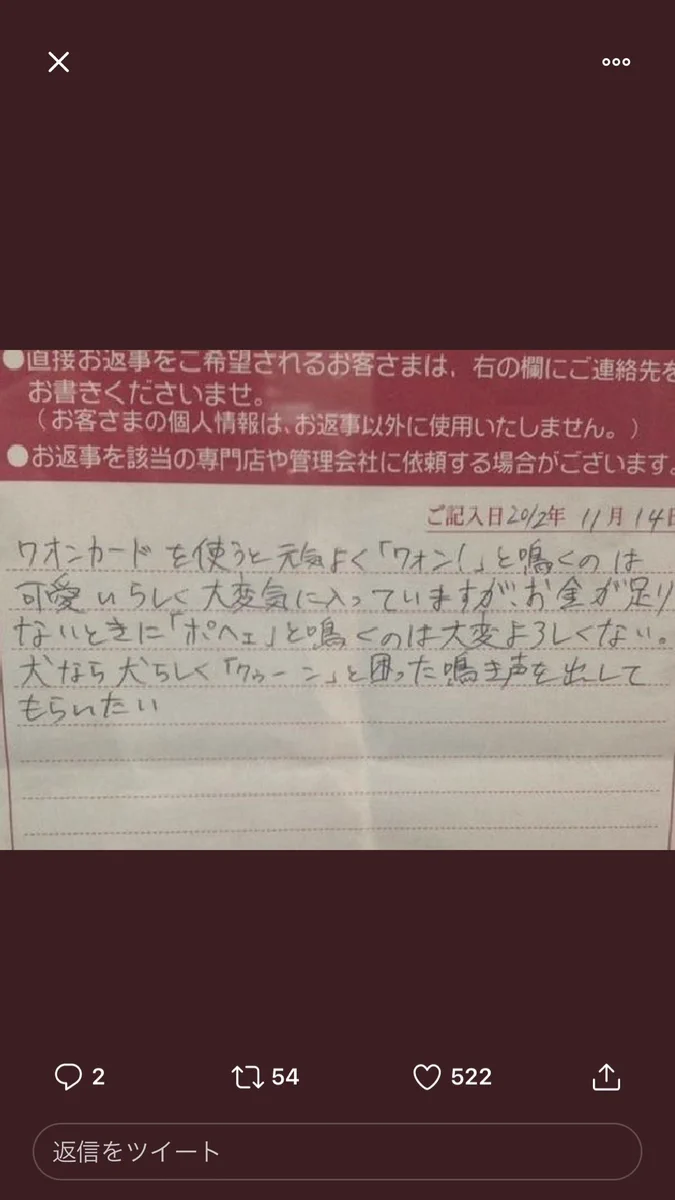 ●直接お返事をご希望されるお客さまは、右の欄にご連絡先を
お書きくださいませ。
（お客さまの個人情報は、お返事以外に使用いたしません。）
●お返事を該当の専門店や管理会社に依頼する場合がございます。
ご記入日2012年 11月 14日
ワオンカードを使うと元気よく「ワォン!」と鳴くのは
可愛いらしく大変気に入っていますが、お金が足り
ないときに「ポヘェ」と鳴くのは大変よろしくない。
犬なら犬らしく「クゥーン」と困った鳴き声を出して
もらいたい
2
54
522
返信をツイート